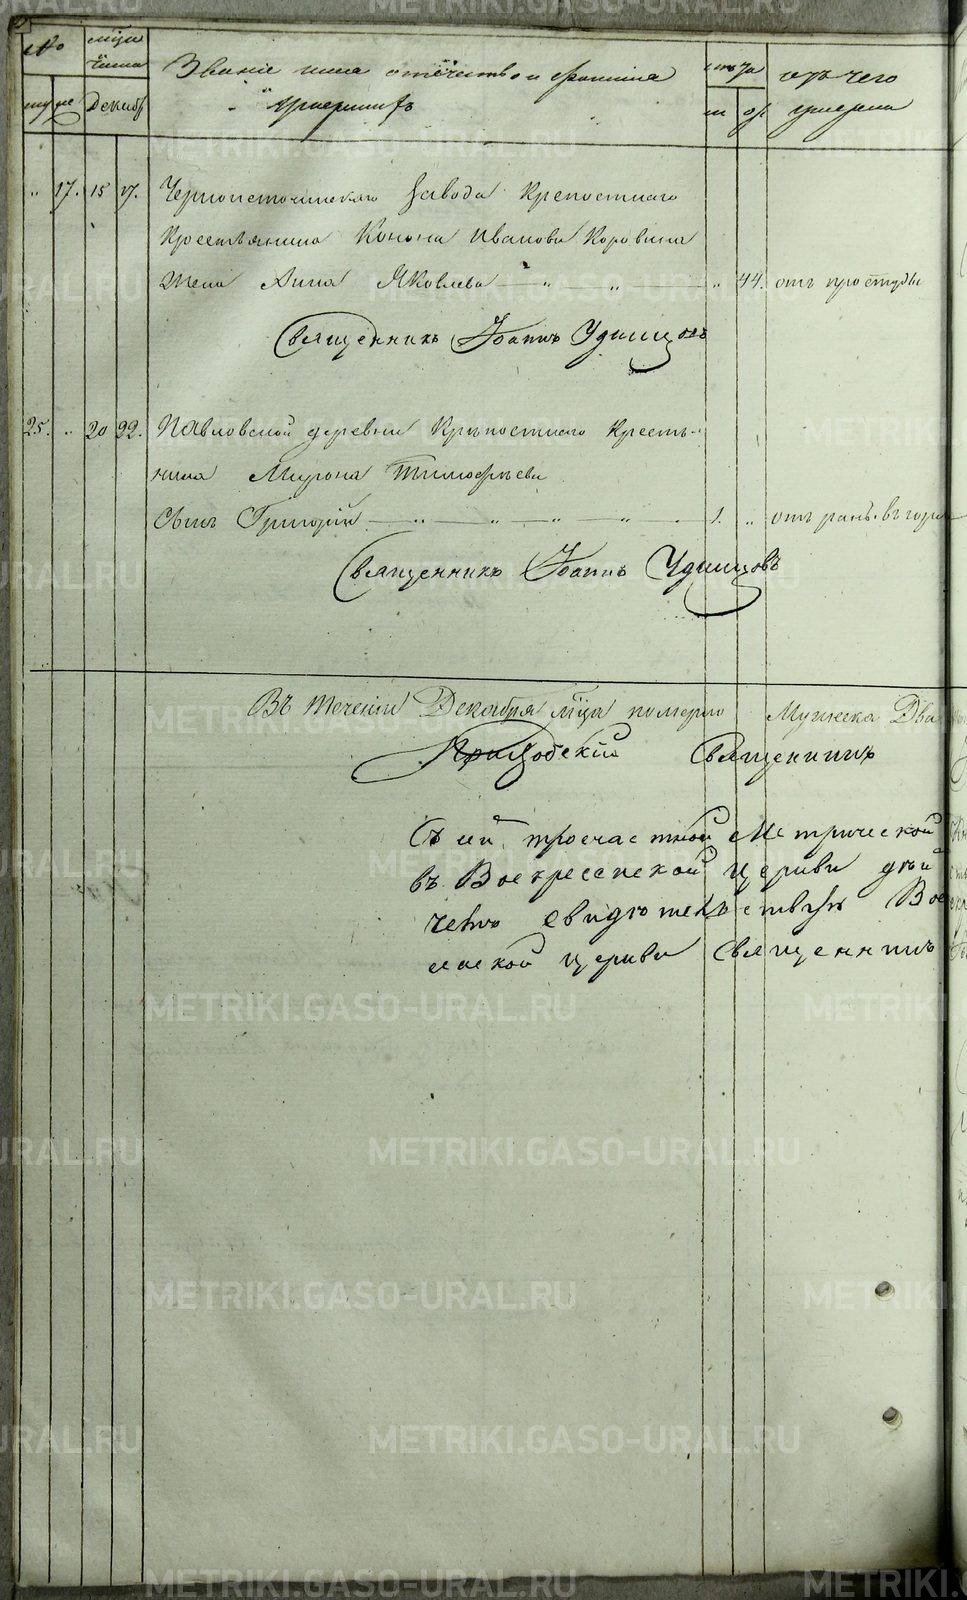 № мѣсяца числа Званіе имя отечество и фамилія лѣта отъ чего
муж жен Декабрь умершихъ м. ж. умерли
" 17. 15 17. Черноисточинскаго Завода Крепостнаго
Крестьянина Конона Иванова Коровина
Жена Анна Яковлева — " — " — " 44. отъ простуды
Священникъ Іоаннъ Удинцовъ
25. " 20 22. Павловской деревни Крѣпостнаго Кресть-
нина Мирона Тимофѣева
Сынъ Григорій — " — " — " — 1. " отъ ранъ въ гор
Священникъ Іоаннъ Удинцовъ
Въ теченіи Декабря мца померло Мужеска Два
Приходскій Священникъ
Съ ей троечастной Метрической
въ Воскресенской церкви дѣй
чемъ свидѣтельствуъ Вос
нской церкви Священникъ
METRIKI.GASO-URAL.RU